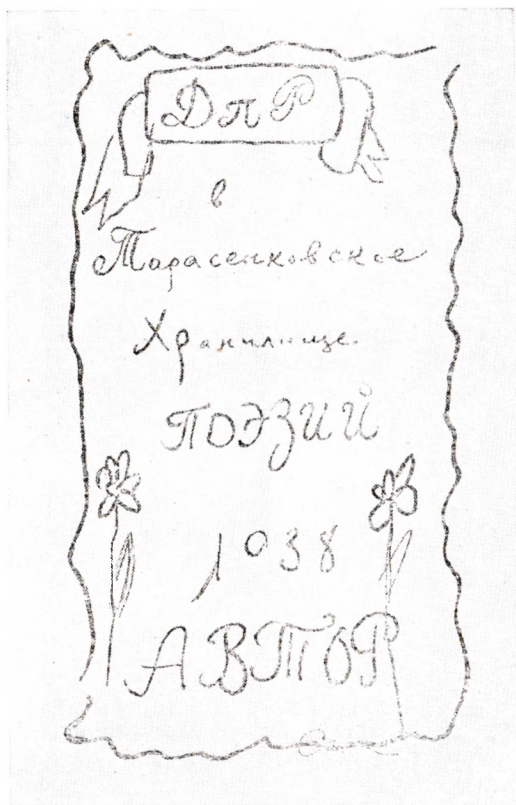 ДпР
в
Тарасенковское
Хранилище
ПОЭЗИЙ
1938
АВТОР